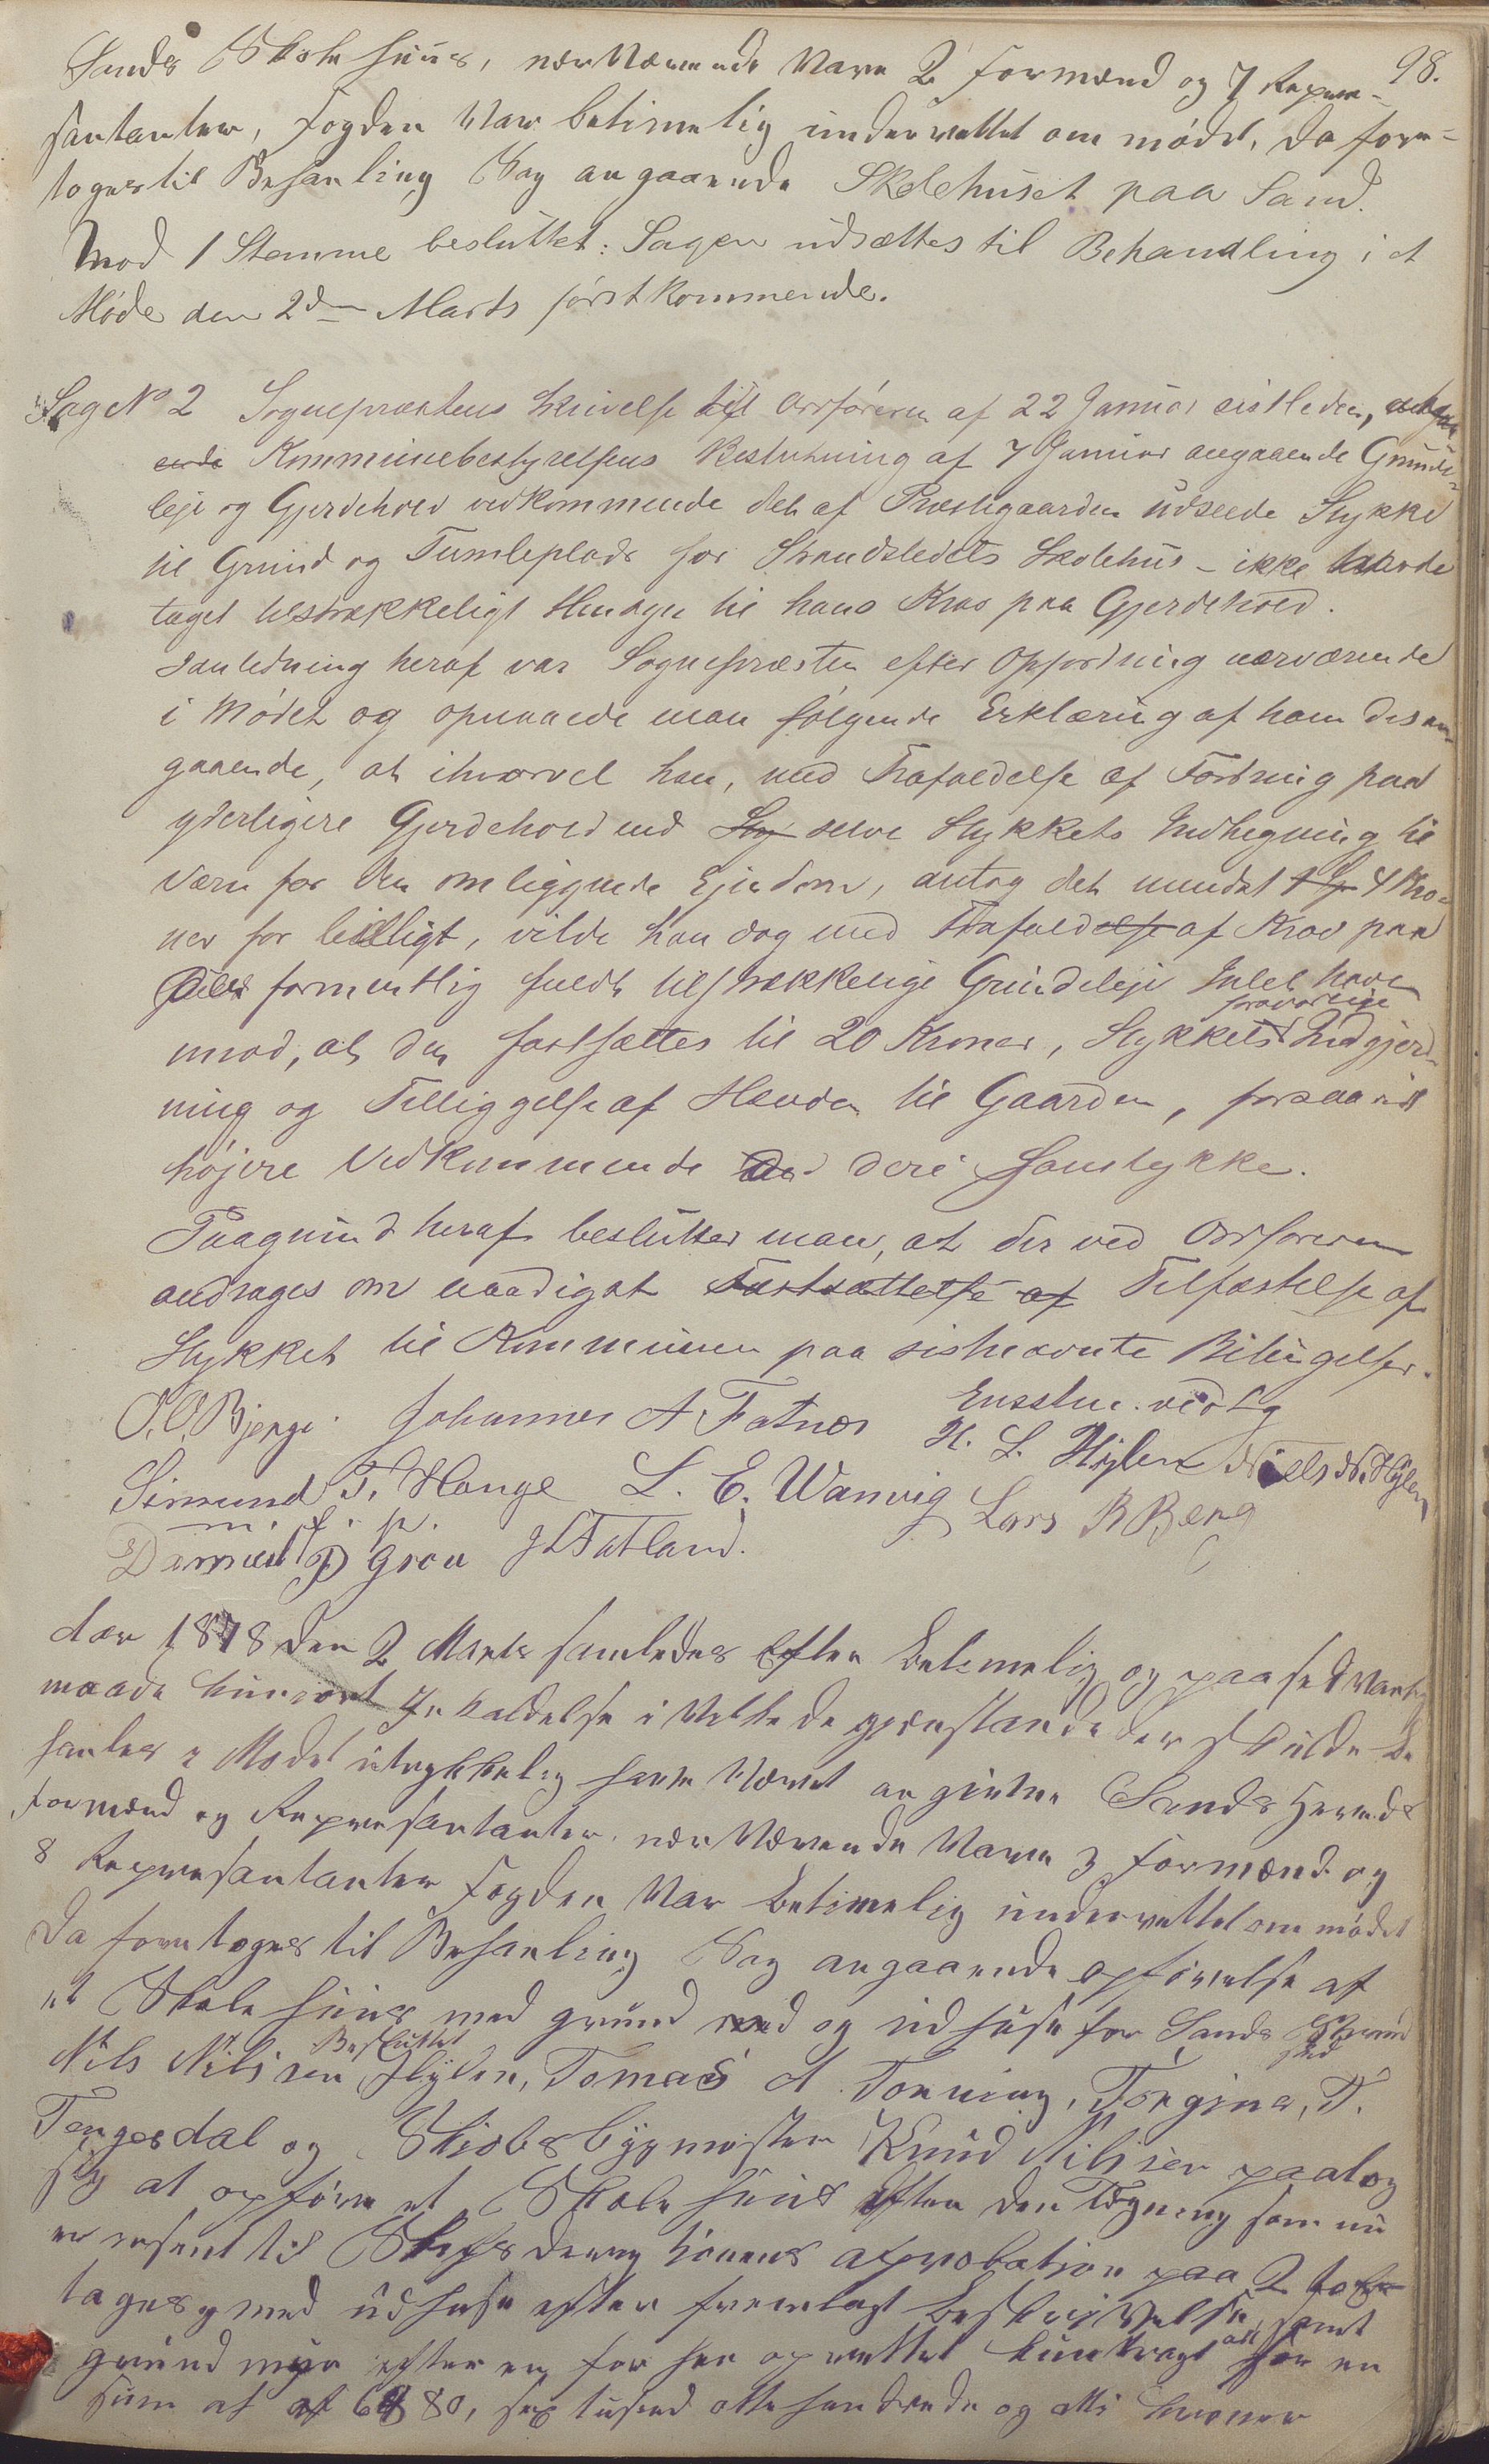 98.
Sands Skolehuus, nærværende Vare 2 Formænd og 7 Repre-
santanter, Fogden Var betimelig underrettet om mødet, da fore-
toges til Behanling Sag angaaende Skolehuset paa Sand.
Mod 1 Stemme besluttet: Sagen udsættes til Behandling i et
Møde den 2den Marts førstkommende.
Sag No 2 Sognepræstens Skrivelse til Ordføreren af 22 Januar sistleden,
Kommunebestyrelsens Beslutning af 7 Januar angaaende Grunde-
leje og Gjerdehold vedkommende det af Præstegaarden udseede Stykke
til Grund og Tumleplads for Strandstedets Skolehus - ikke havde
taget tilstrækkeligt Hensyn til hans Krav paa Gjerdehold.
I anledning heraf var Sognepræsten efter Opfordring nærværende
i Mødet og opnaaede man følgende Erklæring af ham desan-
gaaende, at ihvorvel han, med Frafaldelse af Fordring paa
yderligere Gjerdehold end Sty selve Stykkets Indhegning til
Værn for den omliggende Ejendom, antog det mindst 4 Kro-
ner for lidligt, vilde han dog med Frafaldelse af Krav paa
formentlig fuldt tilstrækkelige Grundleje Intet have
imod, at den fastsættes til 20 Kroner, Stykkets forsvarlige Indgjerd-
ning og Tilliggelse af Hævden til Gaarden, forsaavidt
højere Vedkommende deri samtykke.
Paagrund heraf beslutter man, at der ved Ordføreren
andrages om naadigst Fastsættelse af Tilfæstelse af
Stykket til Kommunen paa sistnævnte Betingelser.
Enstem. vedtg
O. O. Bjerge. Johannes A Fatnes H. L. Hylen Niels N. Hylen
Simund T. Hauge L. E. Wanvig Lars B Berg
m. f. p.
Daniel P Grou J L Fatland.
Aar 1878 den 2 Marts samledes Efter betimelig og paa sedvanlig
maade kundgjort Inkaldelse i Vilke de gjenstande der skulde be
hanles i Mødet utrykkelig havde Været angivene Sands Hereds
formænd og Represantanter, nærværende Vare 3 formænd og
8 Represantanter Fogden Var betimelig underrettet om mødet
Da foretoges til Behanling Sag angaaende opførelse af
et Skolehuus med grund med og udhuse for Sands Strand
sted
Besluttet
Nils Nilsen Hylen, Tomas A Tonning, Torgius, T.
Tengesdal og Skibsbygmester Knud Nilsen paatog
sig at opføre et Skolehuus Efter den Tegning som nu
er insent til Stifsdereksionens aprobation paa 2
tager med udhuse efter fremlagt beskrivelse, samt
grund mur efter en for her oprettet kuntragt alt for en
sum af 6880, sex tusend otte hundrede og otti kroner